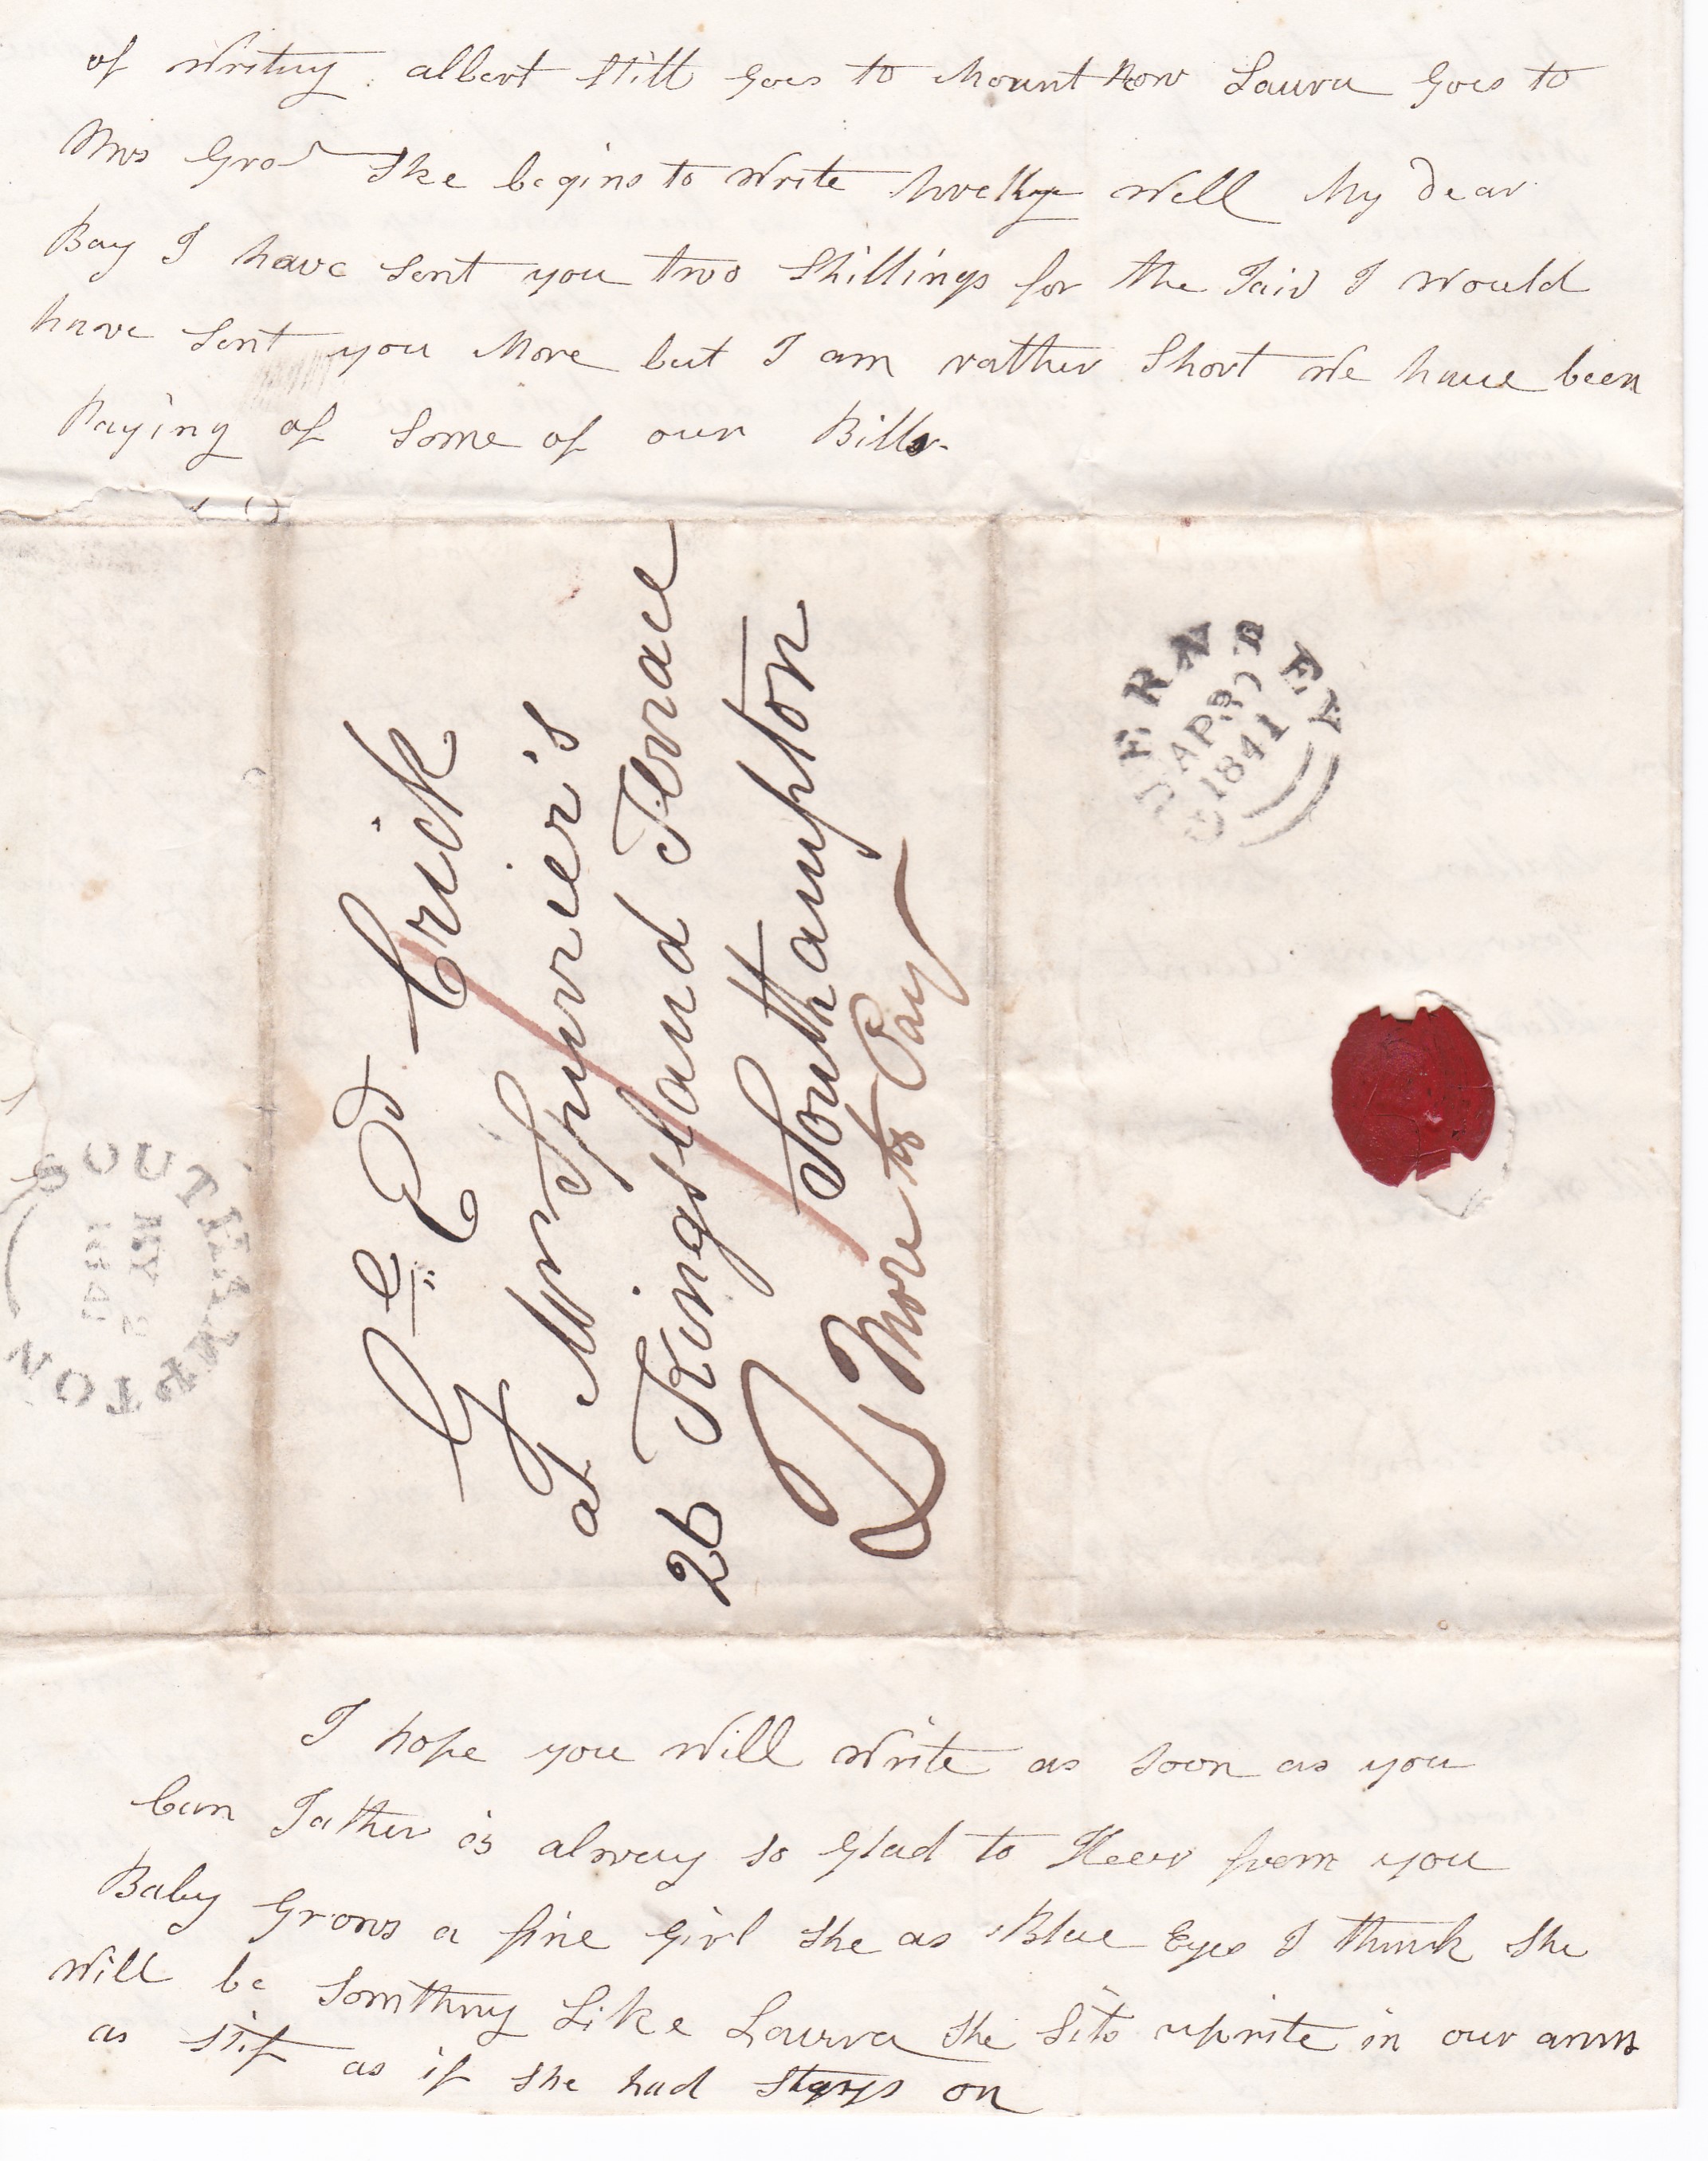 of Writing. albert still Goes to Mount Row Laura Goes to
Mrs She begins to Write well My dear
Boy I have sent you two Shillings for the Fair I would
have sent you More but I am rather Short We have been
Paying of Some of our Bills
Geo Ed Crick
at Mr Spurrier's
26 Kingsland Terrace
Southampton
More to Pay
GUERNSEY
AP 30
1841
SOUTHAMPTON
MY 2
1841
I hope you Will Write as soon as you
Can Father is alway so Glad to Heer from you
Baby Grows a fine Girl she as Blue Eyes I think she
Will be Somthing Like Laura she Sits uprite in our arms
as stif as if she had stays on